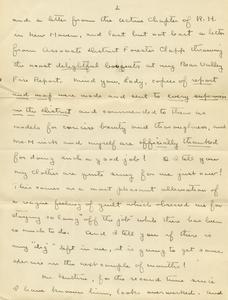 2
and a letter from the Active Chapter of R.H.
in New Haven, and last but not least a letter
from Associate District Forester Clapp throwing
the most delightful bouquets at my Pecos Valley
Fire Report. Mind you, body, copies of report
and map were made and sent to every supervisor
in the district and commended to them as
models for concise beauty and thoroughness, and
and myself are officially thanked
for doing such a good job! I tell you
my clothes are quite snug for me just now!
This comes as a most pleasant alleviation of
a vague feeling of guilt which obsessed me for
staying so long "off the job" while there has been
so much to do. And I tell you if there is
any "dig" left in me, it is going to get some
exercise in the next couple of months!
Mr. for the second time since
I have known him, looks overworked. And